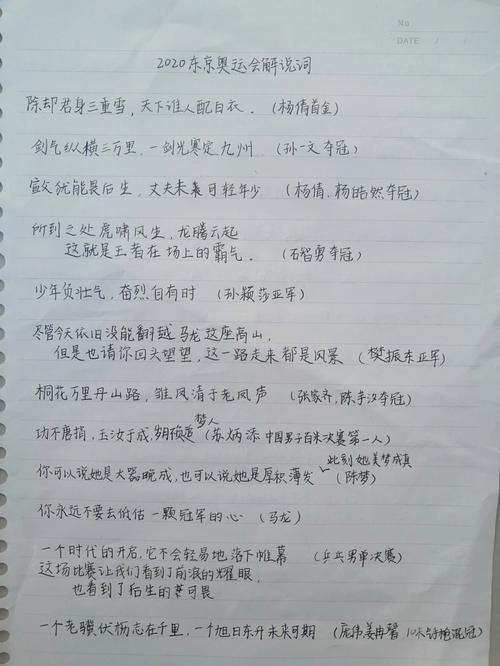 No
DATE / /
2020东京奥运会解说词
除却君身三重雪,天下谁人配白衣.(杨倩首金)
剑气纵横三万里,一剑光寒定九州(孙一文夺冠)
宣父犹能畏后生,丈夫未来可轻年少(杨倩、杨皓然夺冠)
所到之处虎啸风生,龙腾云起
这就是王者在场上的霸气.(石智勇夺冠)
少年负壮气,奋烈自有时(孙颖莎亚军)
尽管今天依旧没能翻越马龙这座高山,
但是也请你回头望望,这一路走来都是风景(樊振东亚军)
桐花万里丹山路,雏凤清于老凤声(张家齐,陈芋汐夺冠)
梦人
功不唐捐,玉汝于成,岁月预追(苏炳添 中国男子百米决赛第一人)
此刻她美梦成真
你可以说她是大器晚成,也可以说她是厚积薄发(陈梦)
你永远不要去低估一颗冠军的心(马龙)
一个时代的开启,它不会轻易地落下帷幕(乒乓男单决赛)
这场比赛让我们看到了前浪的耀眼,
也看到了后生的可畏
一个老骥伏枥志在千里,一个旭日东升未来可期(庞伟姜冉馨 10米 混冠)